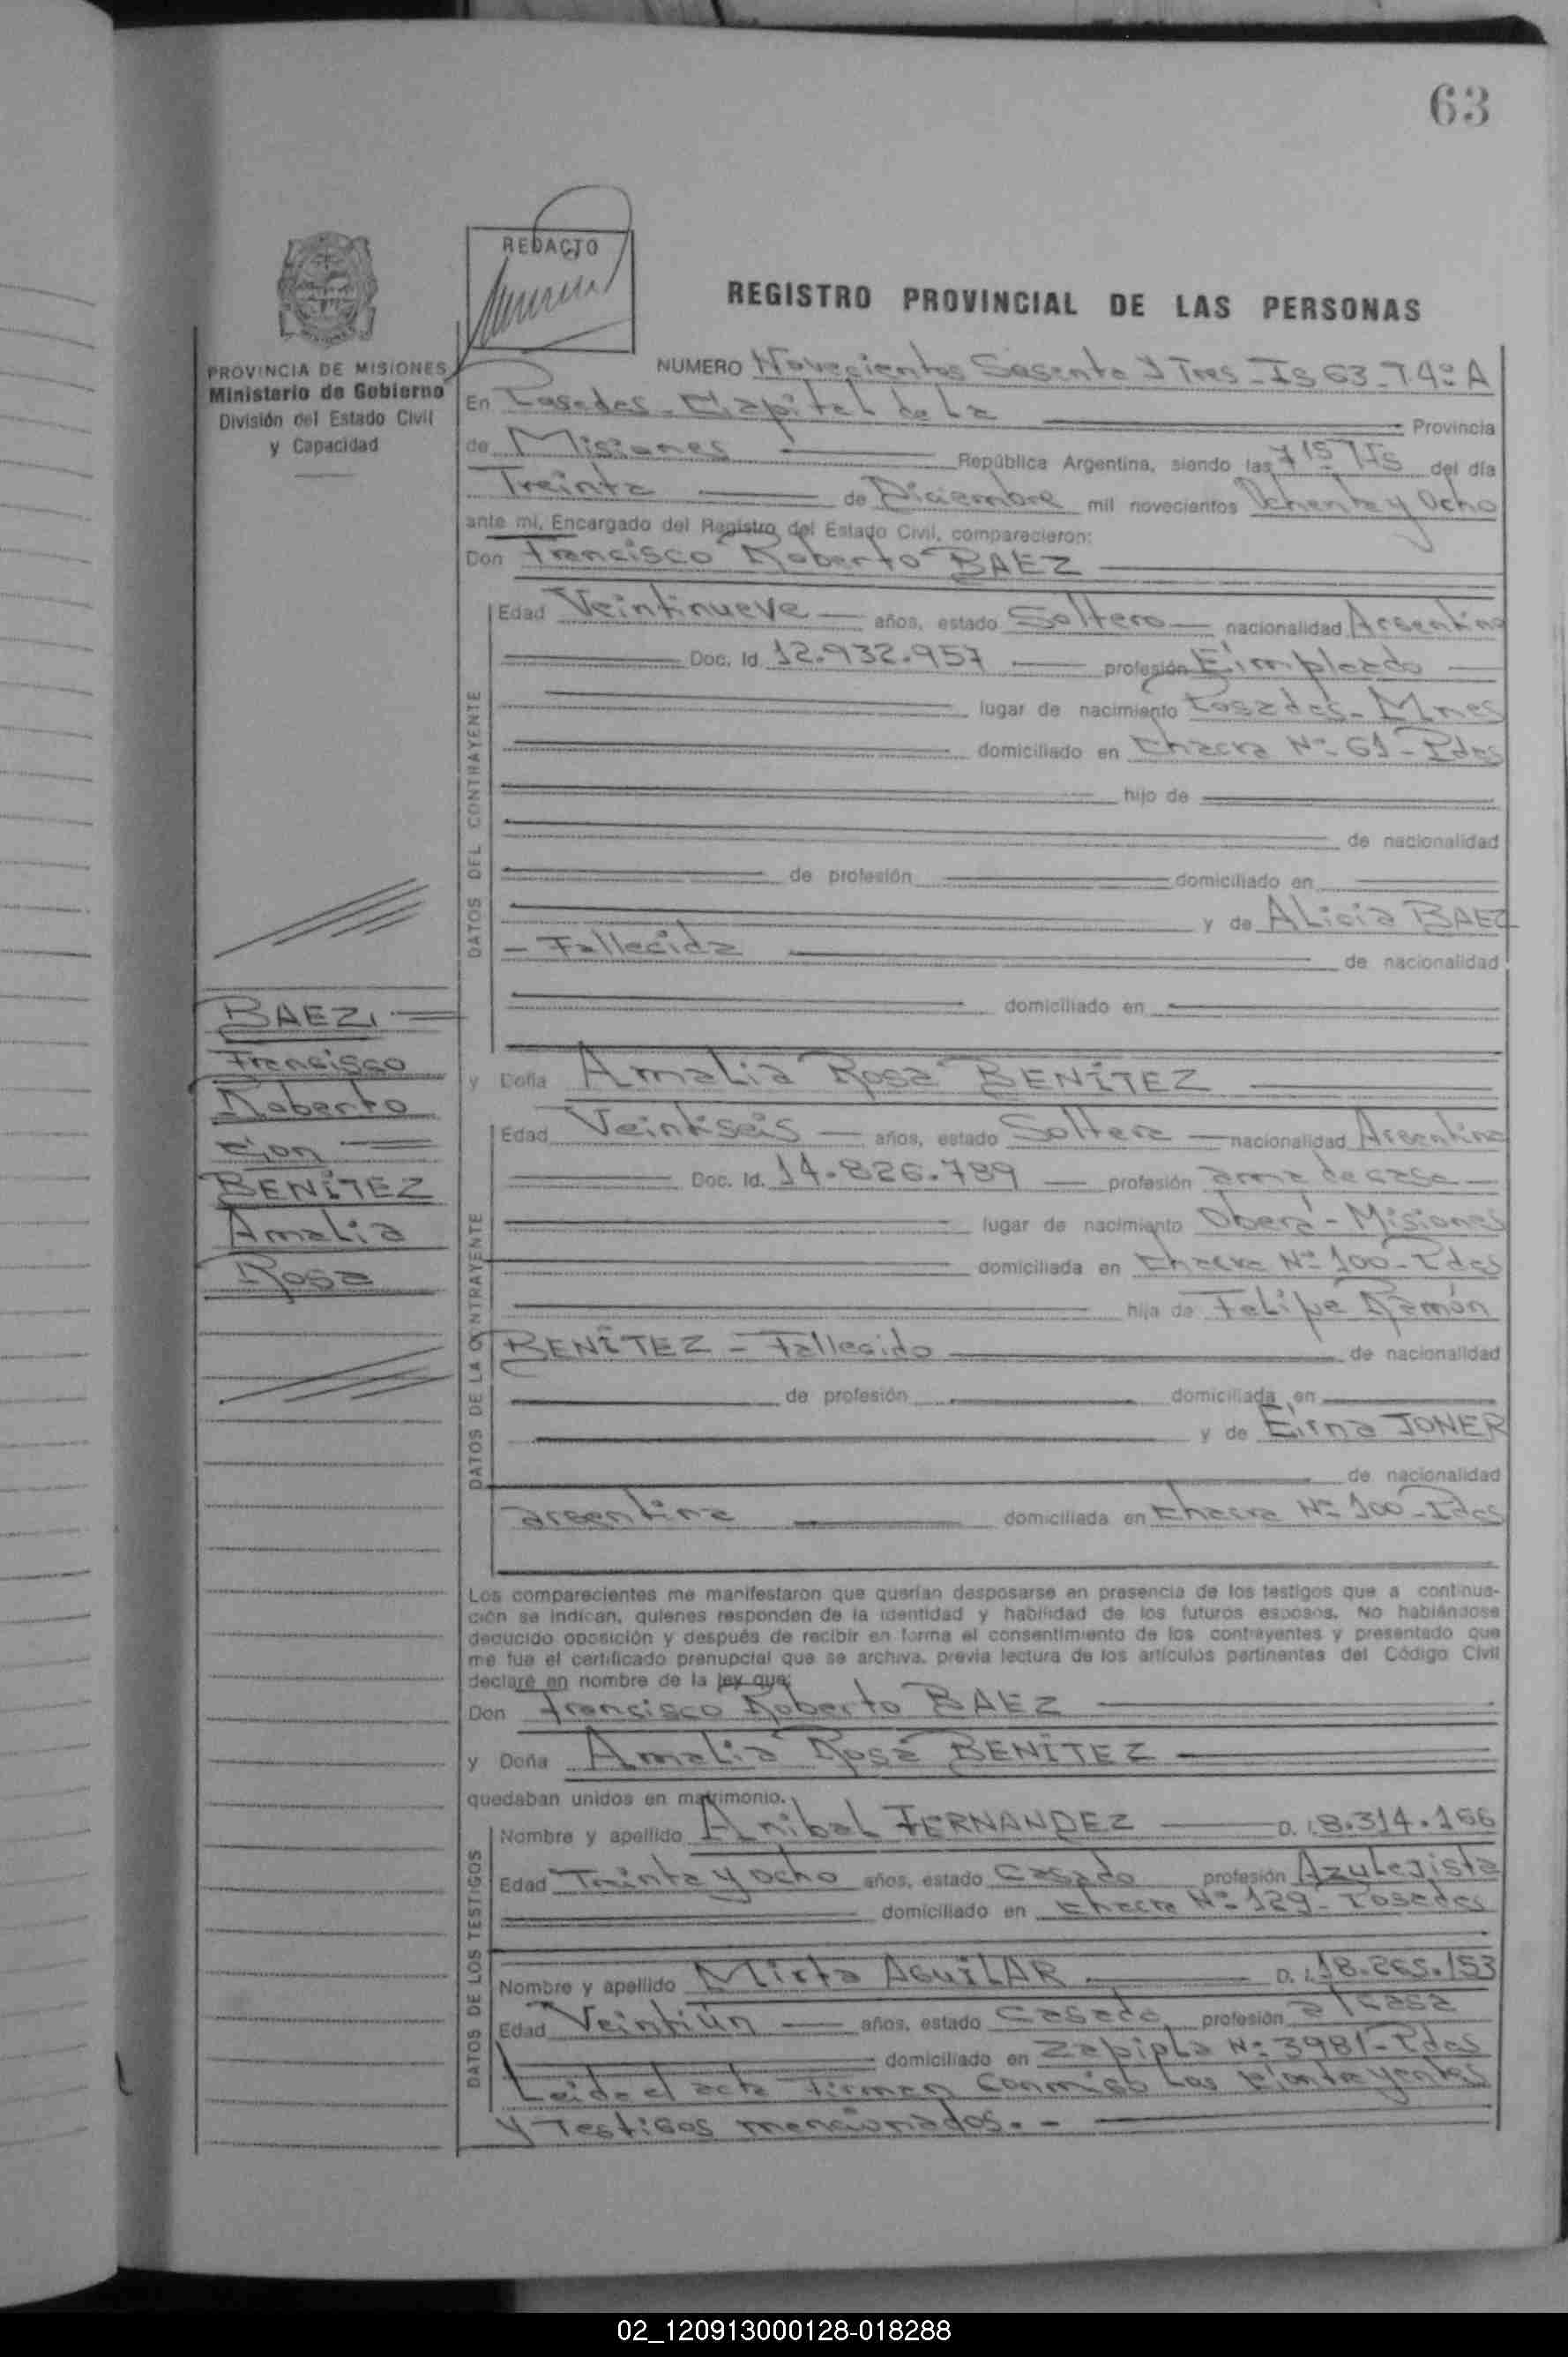 63
REDACTO
REGISTRO PROVINCIAL DE LAS PERSONAS
PROVINCIA DE MISIONES
Ministerio de Gobierno
División del Estado Civil
y Capacidad
NUMERO Novecientos Sesenta y Tres - Fs 63 - T. 4º A
En Posadas - Capital de La Provincia
de Misiones República Argentina, siendo las del día
Treinta de Diciembre mil novecientos Ochenta y Ocho
ante mí, Encargado del Registro del Estado Civil, comparecieron:
Don Francisco Roberto BAEZ
DATOS DEL CONTRAYENTE
Edad Veintinueve años, estado Soltero nacionalidad Argentino
Doc. Id. 12.932.957 profesión Empleado
lugar de nacimiento Posadas - Mnes
domiciliado en Chacra Nº 61 - Pdas
hijo de
de nacionalidad
de profesión domiciliado en
y de ALicia BAEZ
- Fallecida de nacionalidad
domiciliado en
BAEZ,
Francisco
Roberto
Con
BENÍTEZ
Amalia
Rosa
y Doña Amalia Rosa BENÍTEZ
DATOS DE LA CONTRAYENTE
Edad Veintiseis años, estado Soltera nacionalidad Argentina
Doc. Id. 14.826.789 profesión ama de casa
lugar de nacimiento Oberá - Misiones
domiciliada en Chacra Nº 100 - Pdas
hija de Felipe Ramón
BENÍTEZ - Fallecido de nacionalidad
de profesión domiciliada en
y de Erna JONER
de nacionalidad
argentina domiciliada en Chacra Nº 100 - Pdas
Los comparecientes me manifestaron que querían desposarse en presencia de los testigos que a continua-
ción se indican, quienes responden de la identidad y habilidad de los futuros esposos. No habiéndose
deducido oposición y después de recibir en forma el consentimiento de los contrayentes y presentado que
me fue el certificado prenupcial que se archiva, previa lectura de los artículos pertinentes del Código Civil
declaré en nombre de la ley que:
Don Francisco Roberto BAEZ
y Doña Amalia Rosa BENÍTEZ
quedaban unidos en matrimonio.
DATOS DE LOS TESTIGOS
Nombre y apellido Anibal FERNANDEZ D. I. 8.314.166
Edad Treinta y ocho años, estado Casado profesión Azulejista
domiciliado en Chacra Nº 129 - Posadas
Nombre y apellido Mirta AGUILAR D. I. 18.265.153
Edad Veintiún años, estado Casada profesión a/casa
domiciliado en Zapipla Nº 3981 - Pdas
Leida el acta Firman Conmigo Los Contrayentes
y Testigos mencionados. -
02_120913000128-018288